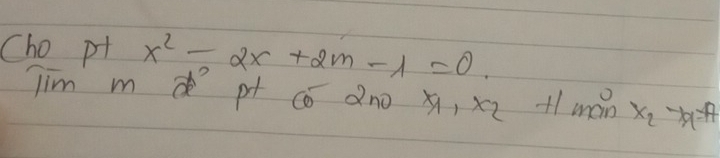 Cho pt x² - 2x + 2m - 1 = 0.
Tìm m để pt có 2no x₁, x₂ t/mãn x₂ - x₁